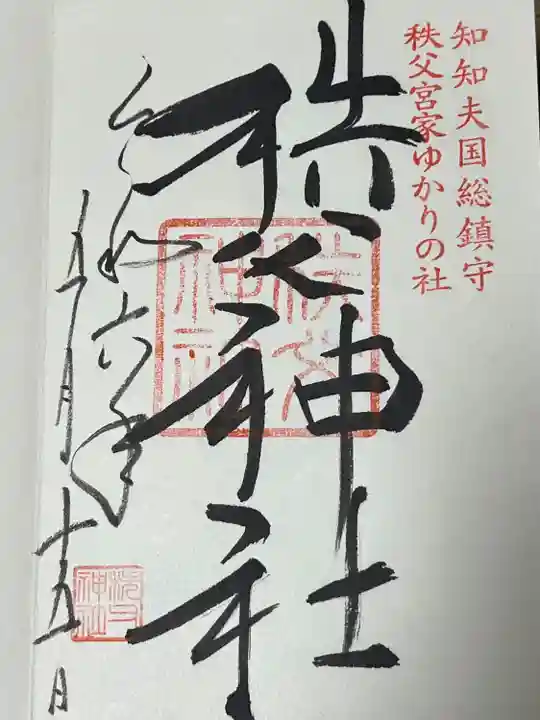 知知夫国総鎮守
秩父宮家ゆかりの社
秩父神社
秩父神社
令和六年
五月十五日
秩父神社